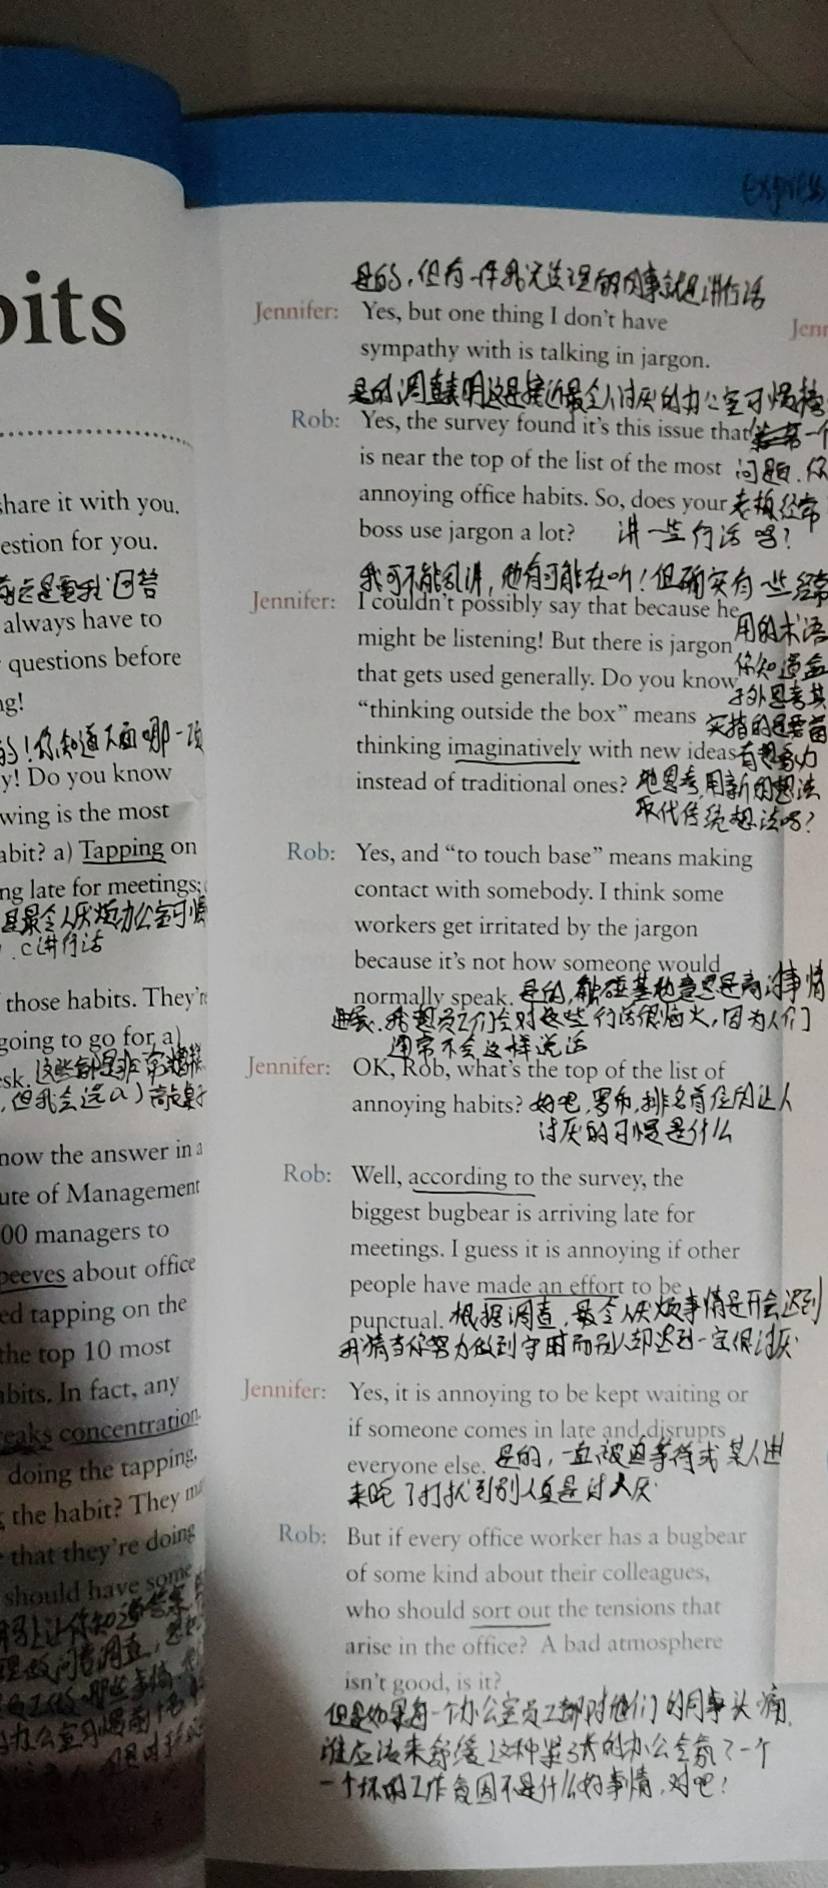 bits
share it with you.
estion for you.
always have to
questions before
ng!
y! Do you know
wing is the most
abit? a) Tapping on
ng late for meetings;
those habits. They're
going to go for a)
esk.
now the answer in a
ute of Management
00 managers to
peeves about office
ed tapping on the
the top 10 most
abits. In fact, any
eaks concentration
doing the tapping,
the habit? They
that they're doing
should have some
是的,但有一件我无法理解的同事就是讲行话
Jennifer: Yes, but one thing I don't have
sympathy with is talking in jargon.
是的,调查表明这是接近最令人讨厌的办公室习惯
Rob: Yes, the survey found it's this issue that 一个
is near the top of the list of the most 问题,你
annoying office habits. So, does your 老板经常
boss use jargon a lot? 讲一些行话吗?
我可不能乱讲,他有可能在听!但确实有一些经常
Jennifer: I couldn't possibly say that because he
might be listening! But there is jargon 用的术语
that gets used generally. Do you know 你知道盒
"thinking outside the box" means 子外思考其
thinking imaginatively with new ideas 实指的是要富有想象力
instead of traditional ones? 地思考,用新的想法
取代传统想法吗?
Rob: Yes, and "to touch base" means making
contact with somebody. I think some
workers get irritated by the jargon
because it's not how someone would
normally speak. 是的,触碰基地意思是
我想员工们会对这些行话很恼火,因为人们
通常不会这样说话
Jennifer: OK, Rob, what's the top of the list of
annoying habits? 好吧,罗布,排名首位的让人
讨厌的习惯是什么
Rob: Well, according to the survey, the
biggest bugbear is arriving late for
meetings. I guess it is annoying if other
people have made an effort to be
punctual. 根据调查,最令人厌烦事情是开会迟到
我猜当你努力做到守时而别人却迟到一定很讨厌
Jennifer: Yes, it is annoying to be kept waiting or
if someone comes in late and disrupts
everyone else. 是的,一直被迫等待或某人进
来晚了打扰到别人真是讨人厌
Rob: But if every office worker has a bugbear
of some kind about their colleagues,
who should sort out the tensions that
arise in the office? A bad atmosphere
isn't good, is it?
但是如果每一个办公室员工都对他们的同事头痛,
谁应该来舒缓这种紧张的办公室氛了一个
一个坏的工作氛围不是什么好事情,对吧!
Jenn